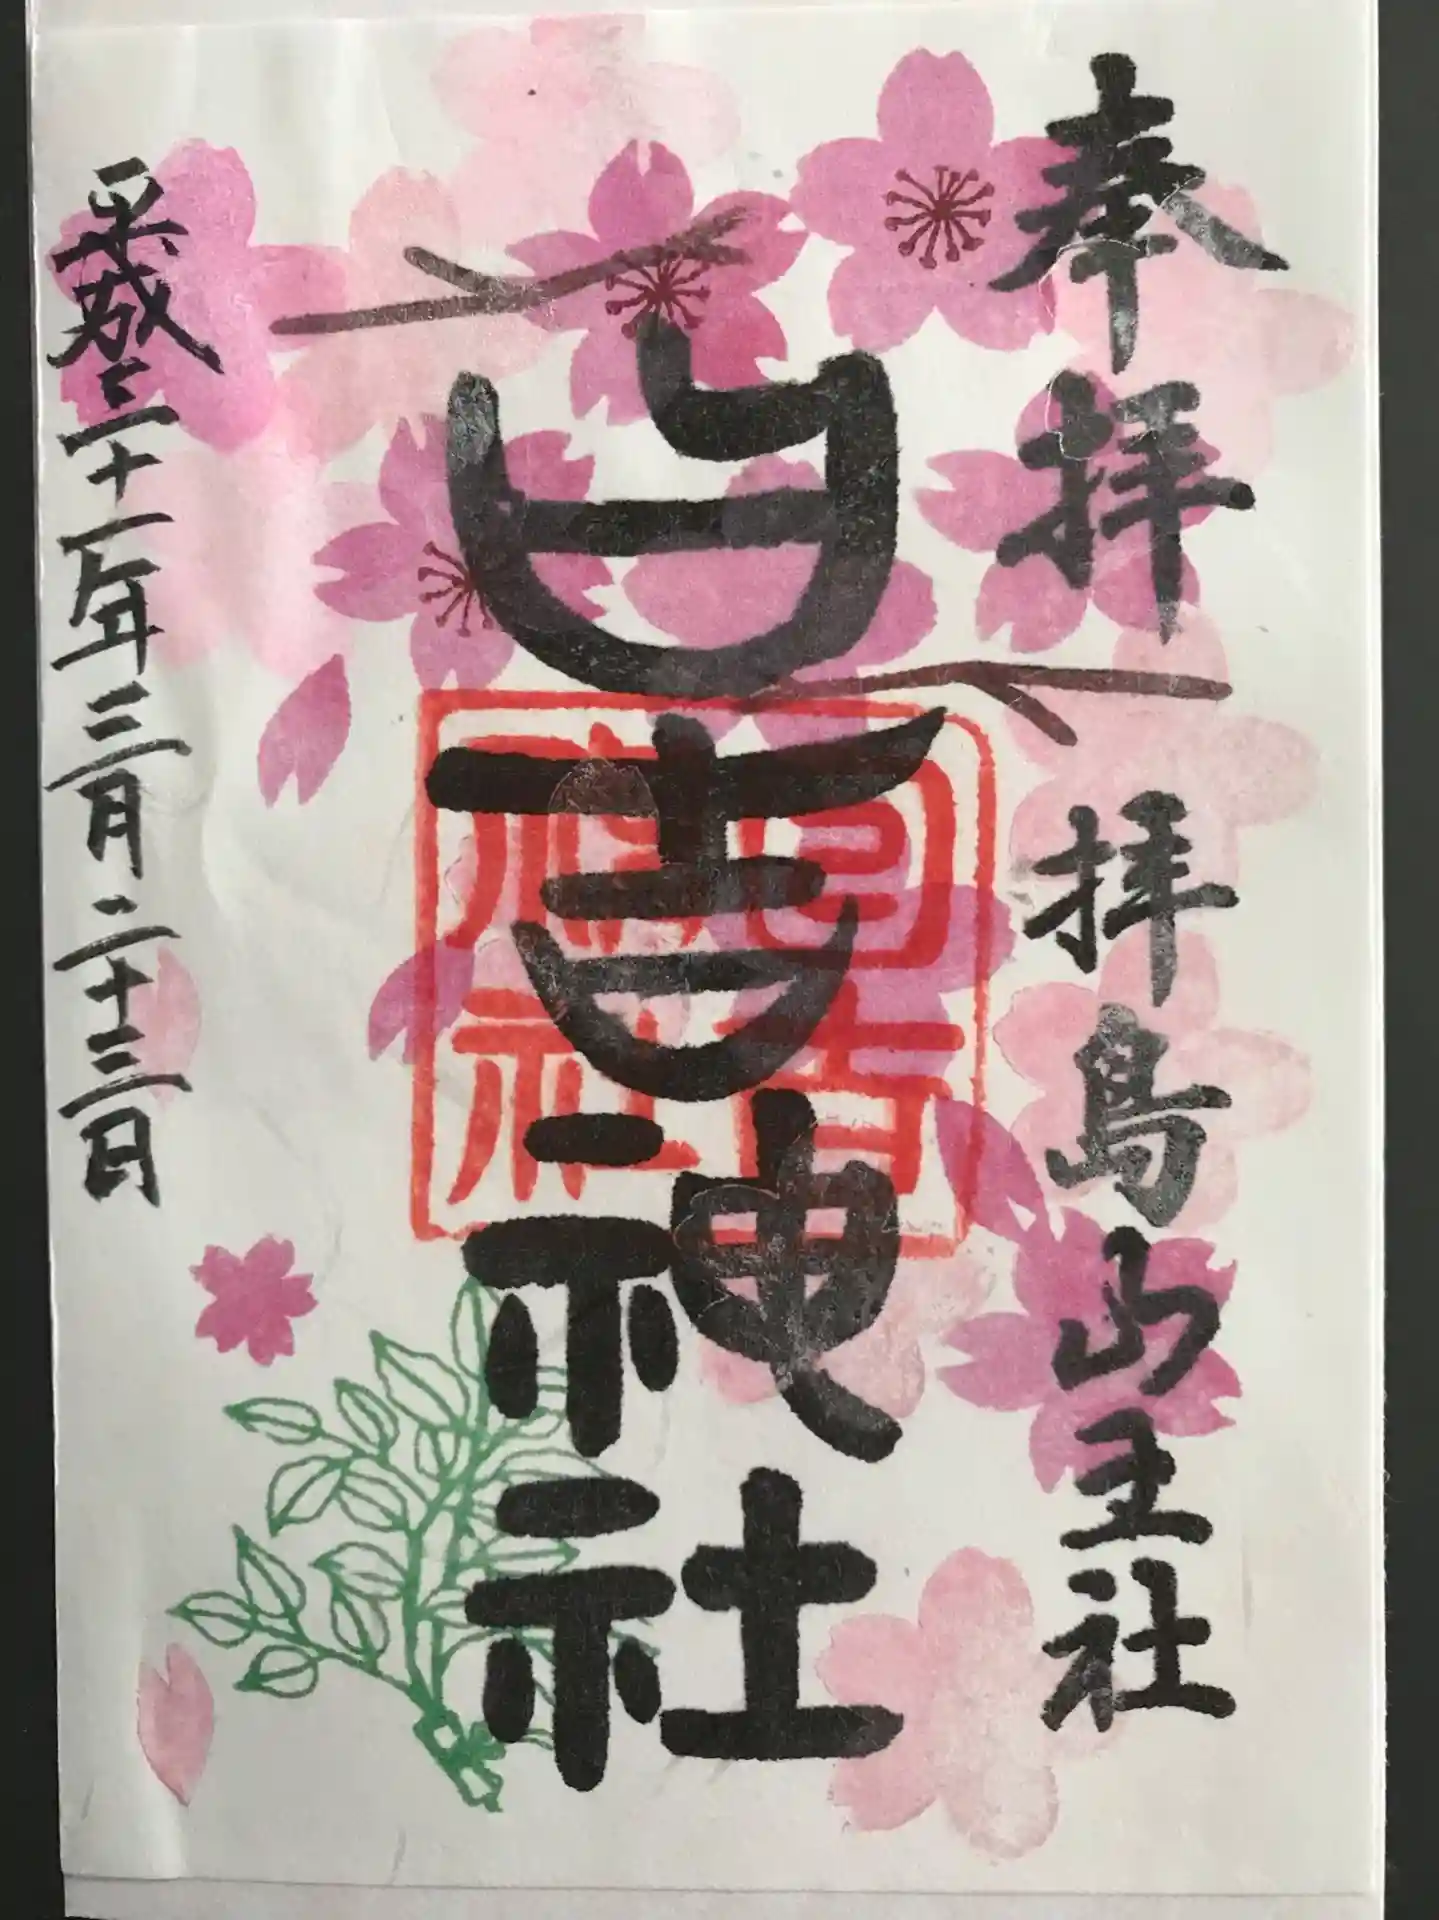 奉拝 拝島山王社
日吉神社
日吉
神社
平成三十一年三月二十三日